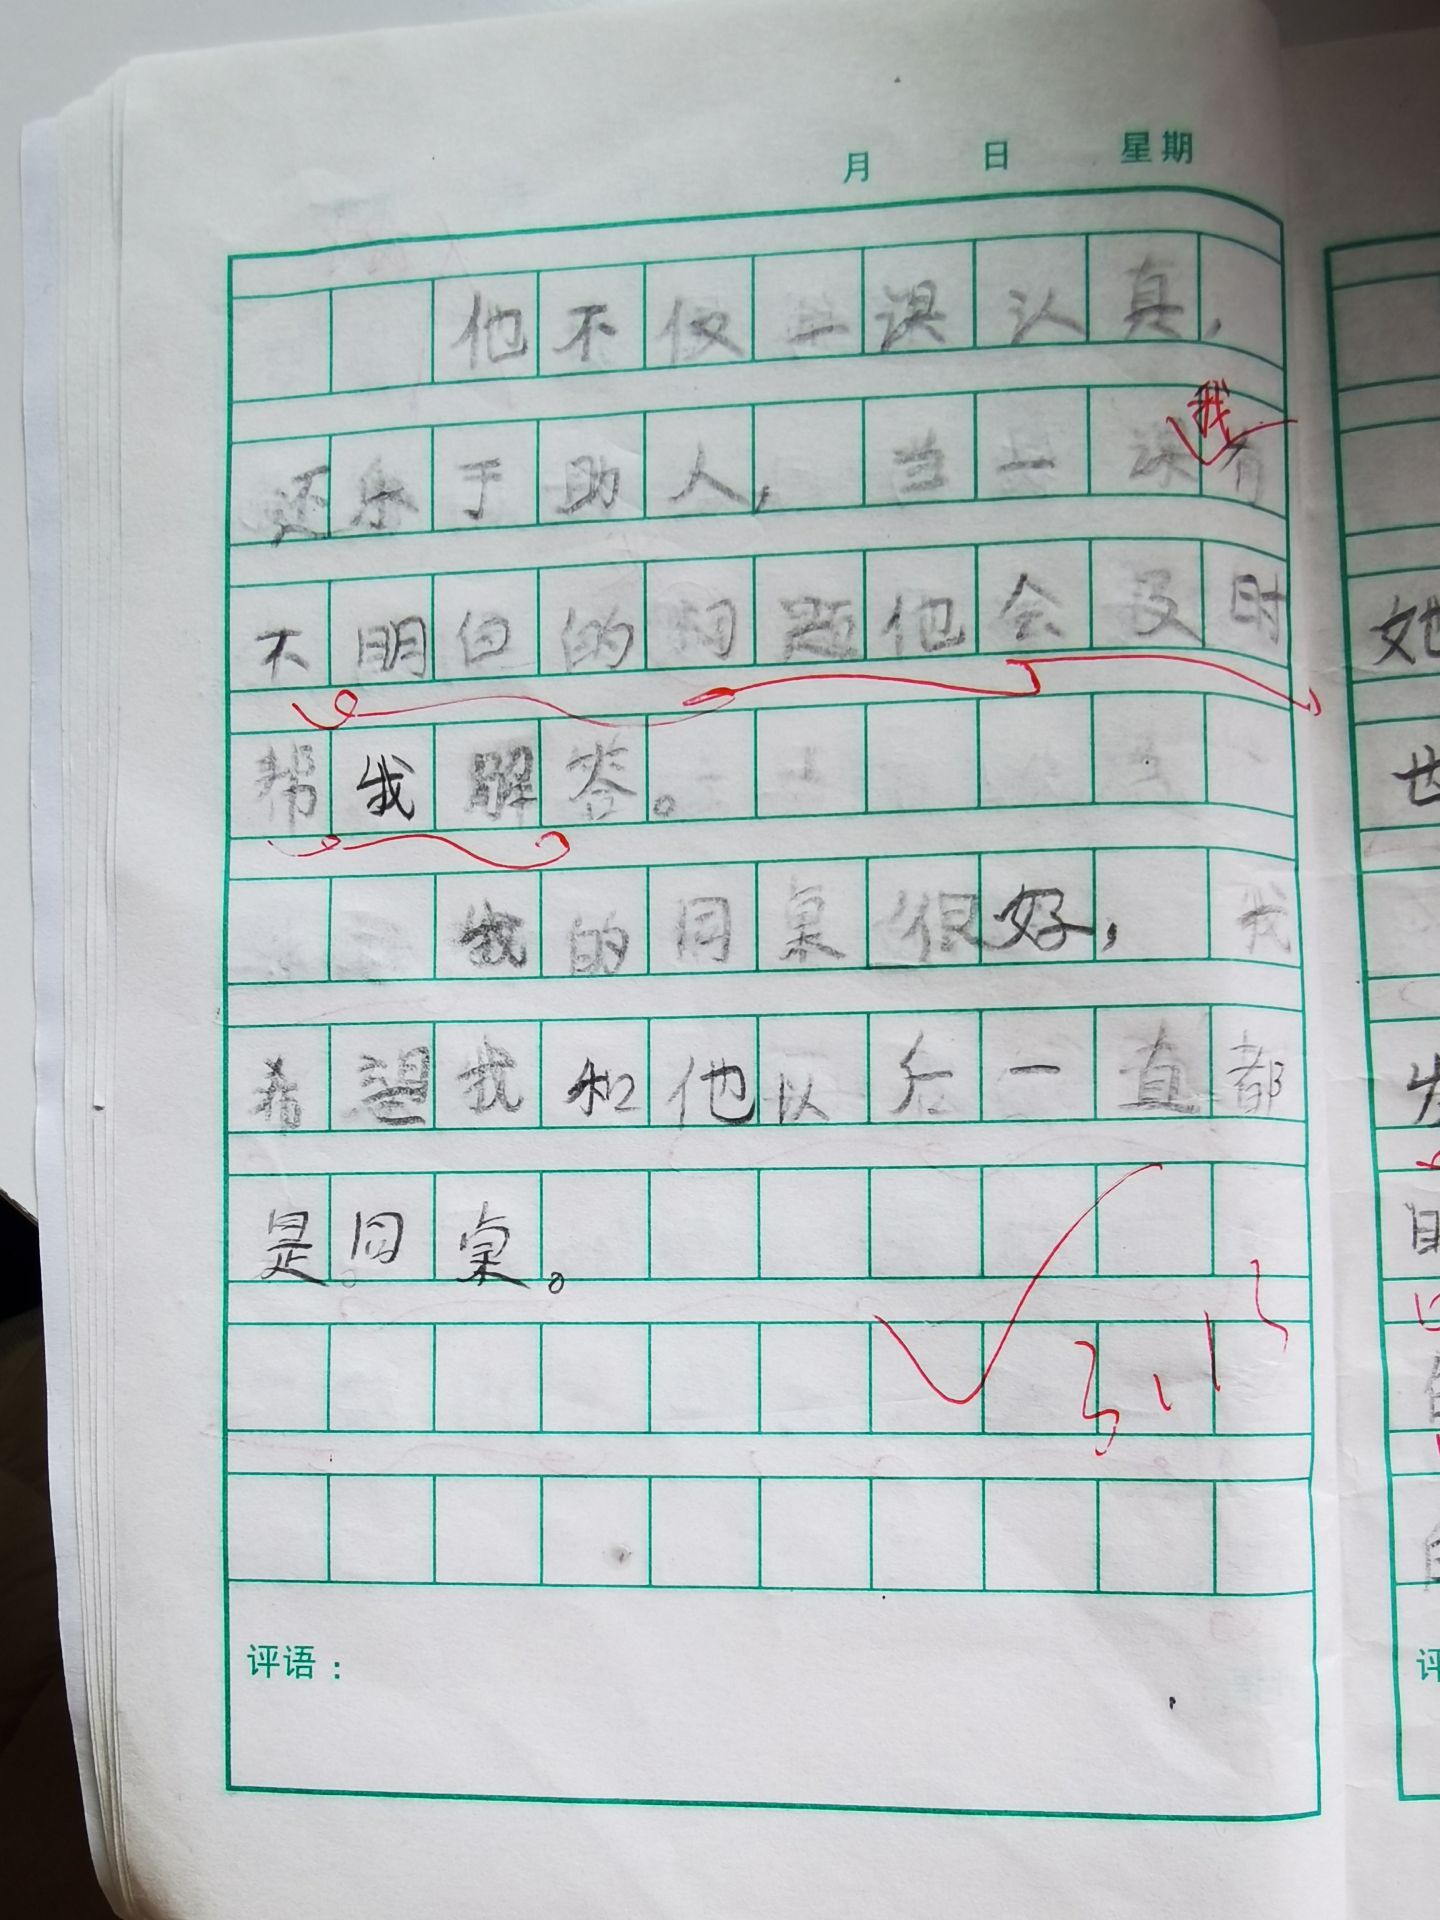 月 日 星期
他不仅上课认真，
我
还乐于助人，当上课有
不明白的问题他会及时
帮我解答。
我的同桌很好，我
希望我和他以后一直都
是同桌。
评语：
她
世